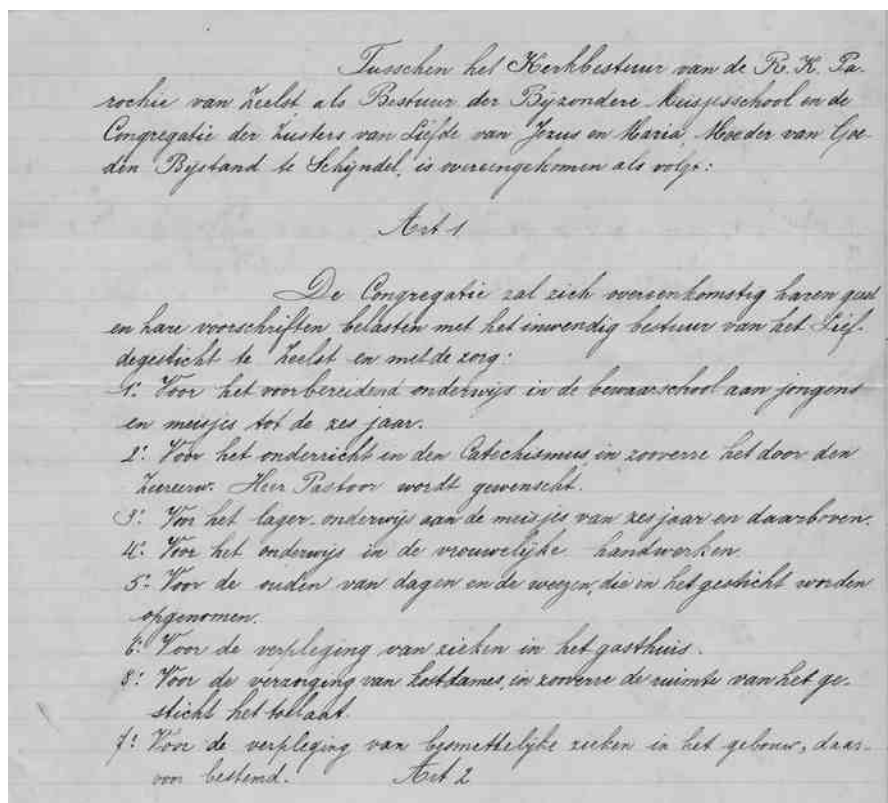 Tusschen het Kerkbestuur van de R. K. Pa-
rochie van Zeelst als Bestuur der Bijzondere Meisjesschool en de
Congregatie der Zusters van Liefde van Jezus en Maria, Moeder van Goe-
den Bijstand te Schijndel, is overeengekomen als volgt:
Art 1
De Congregatie zal zich overeenkomstig haren geest
en hare voorschriften belasten met het inwendig bestuur van het Lief-
degesticht te Zeelst en met de zorg:
1º. Voor het voorbereidend onderwijs in de bewaarschool aan jongens
en meisjes tot de zes jaar.
2º. Voor het onderricht in den Catechismus, in zooverre het door den
Zeereerw. Heer Pastoor wordt gewenscht.
3º. Voor het lager-onderwijs aan de meisjes van zes jaar en daarboven.
4º. Voor het onderwijs in de vrouwelijke handwerken.
5º. Voor de ouden van dagen en de weezen, die in het gesticht worden
opgenomen.
6º. Voor de verpleging van zieken in het gasthuis.
8º. Voor de verzorging van kostdames, in zooverre de ruimte van het ge-
sticht het toelaat.
7º. Voor de verpleging van besmettelijke zieken in het gebouw, daar-
voor bestemd. Art 2